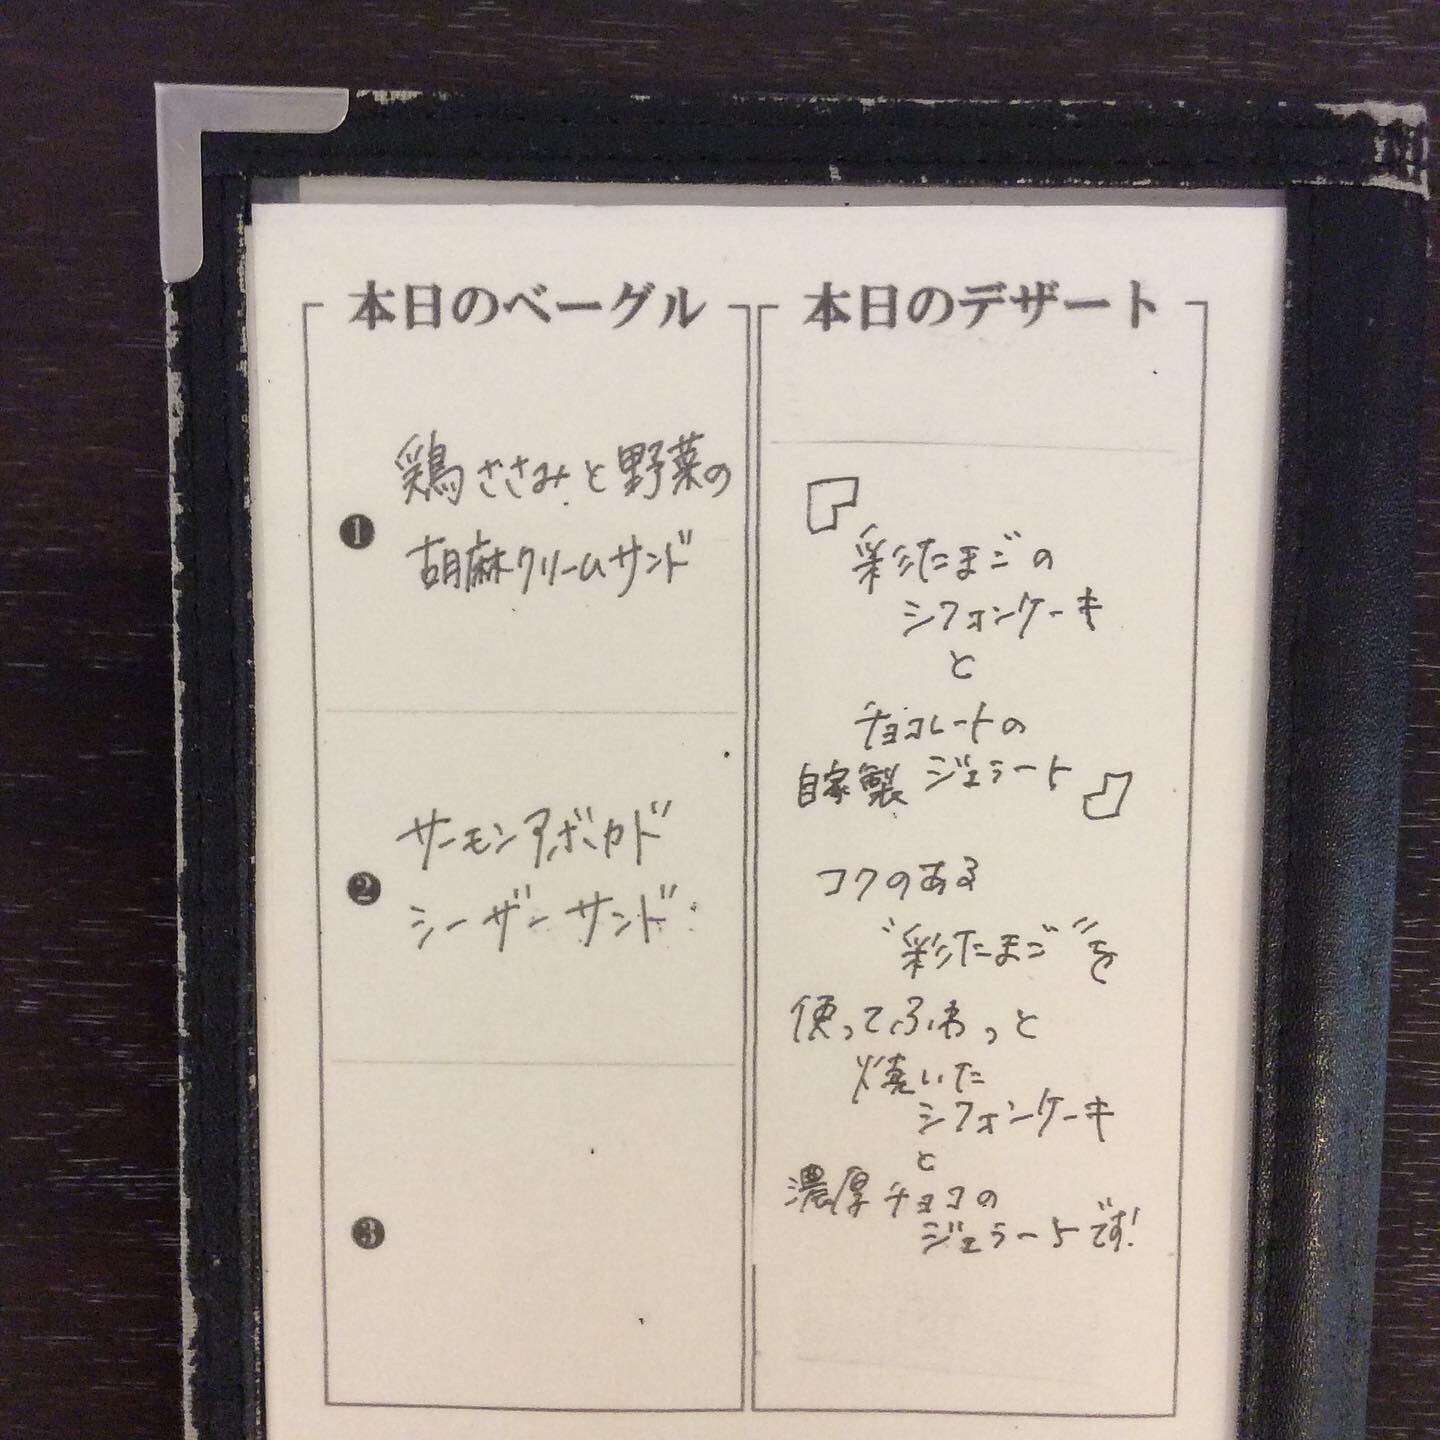 本日のベーグル
❶
鶏ささみと野菜の
胡麻クリームサンド
❷
サーモンアボカド
シーザーサンド
❸
本日のデザート
『
彩たまごの
シフォンケーキ
と
チョコレートの
自家製ジェラート』
コクのある
"彩たまご"を
使ってふわっと
焼いた
シフォンケーキ
と
濃厚チョコの
ジェラートです!